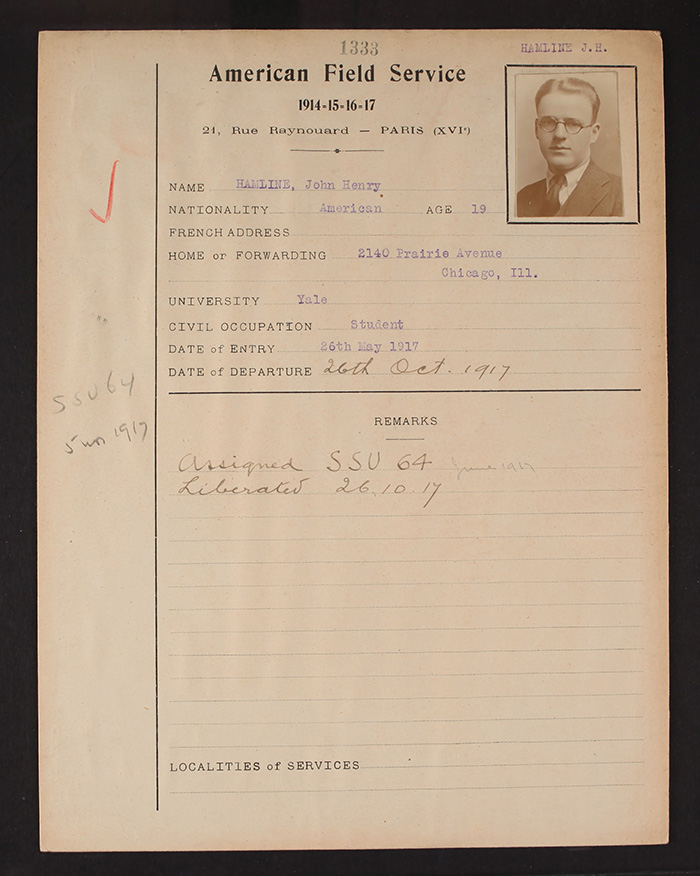 1333
HAMLINE J.H.
American Field Service
1914-15-16-17
21, Rue Raynouard — PARIS (XVIe)
NAME HAMLINE, John Henry
NATIONALITY American AGE 19
FRENCH ADDRESS
HOME or FORWARDING 2140 Prairie Avenue
Chicago, Ill.
UNIVERSITY Yale
CIVIL OCCUPATION Student
DATE of ENTRY 26th May 1917
DATE of DEPARTURE 26th Oct. 1917
SSU 64
5 1917
REMARKS
Assigned SSU 64 June 1917
Liberated 26.10.17
LOCALITIES of SERVICES